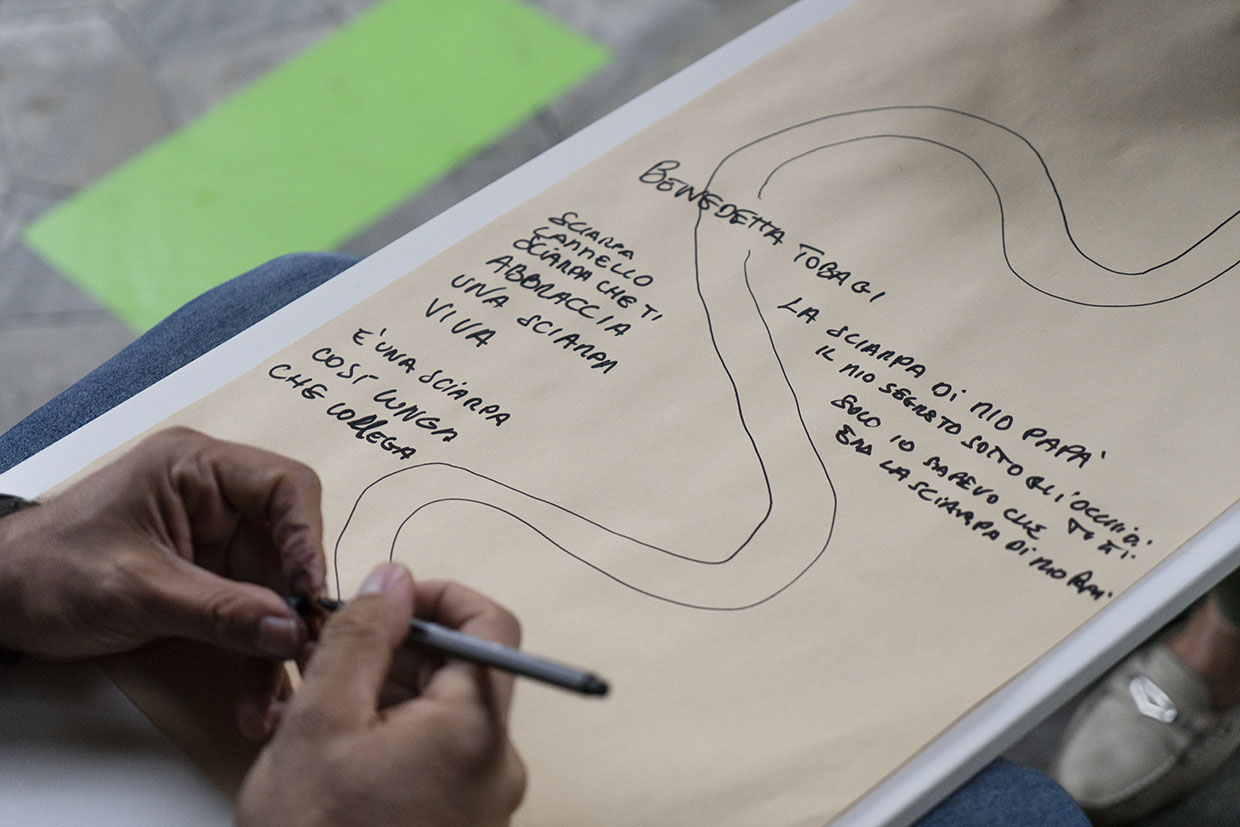 BENEDETTA TOBAGI
SCIARPA
CAMMELLO
SCIARPA CHE TI
ABBRACCIA
UNA SCIARPA
VIVA
E' UNA SCIARPA
COSÌ LUNGA
CHE COLLEGA
LA SCIARPA DI MIO PAPA'
IL MIO SEGRETO SOTTO GLI OCCHI DI TUTTI.
SOLO IO SAPEVO CHE
ERA LA SCIARPA DI MIO PAPA'